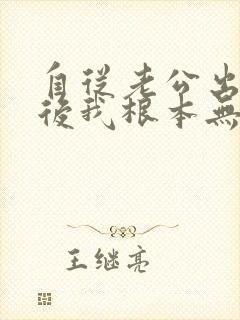 自從老公出
後我根本無
王继亮